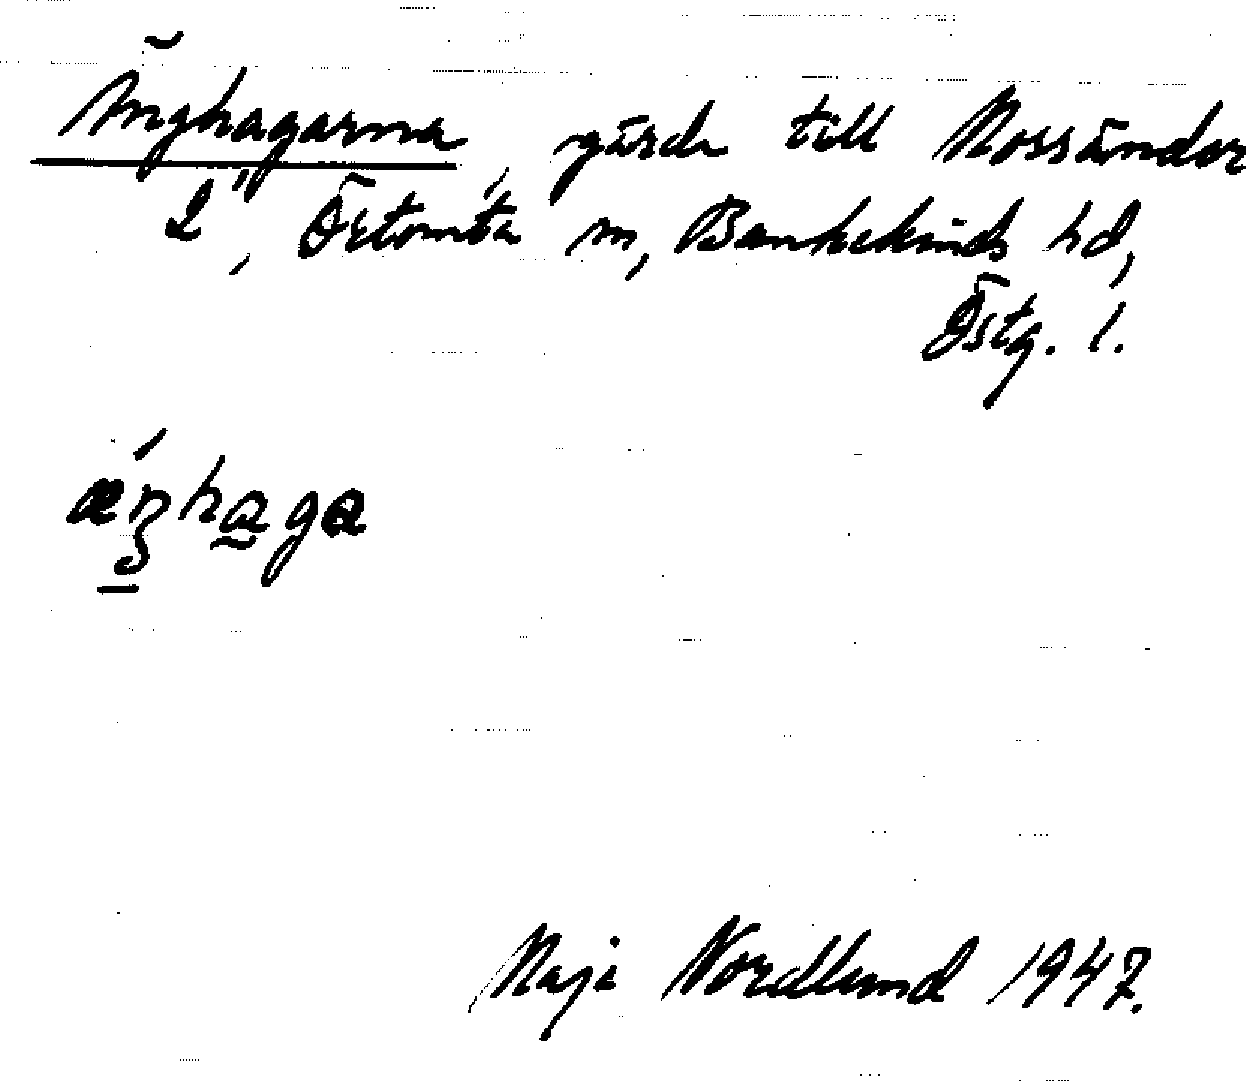 Änghagarna, gärde till Mossänder
2", Örtomta sn, Bankekinds hd,
Östg. l.
Maja Nordlund 1947.